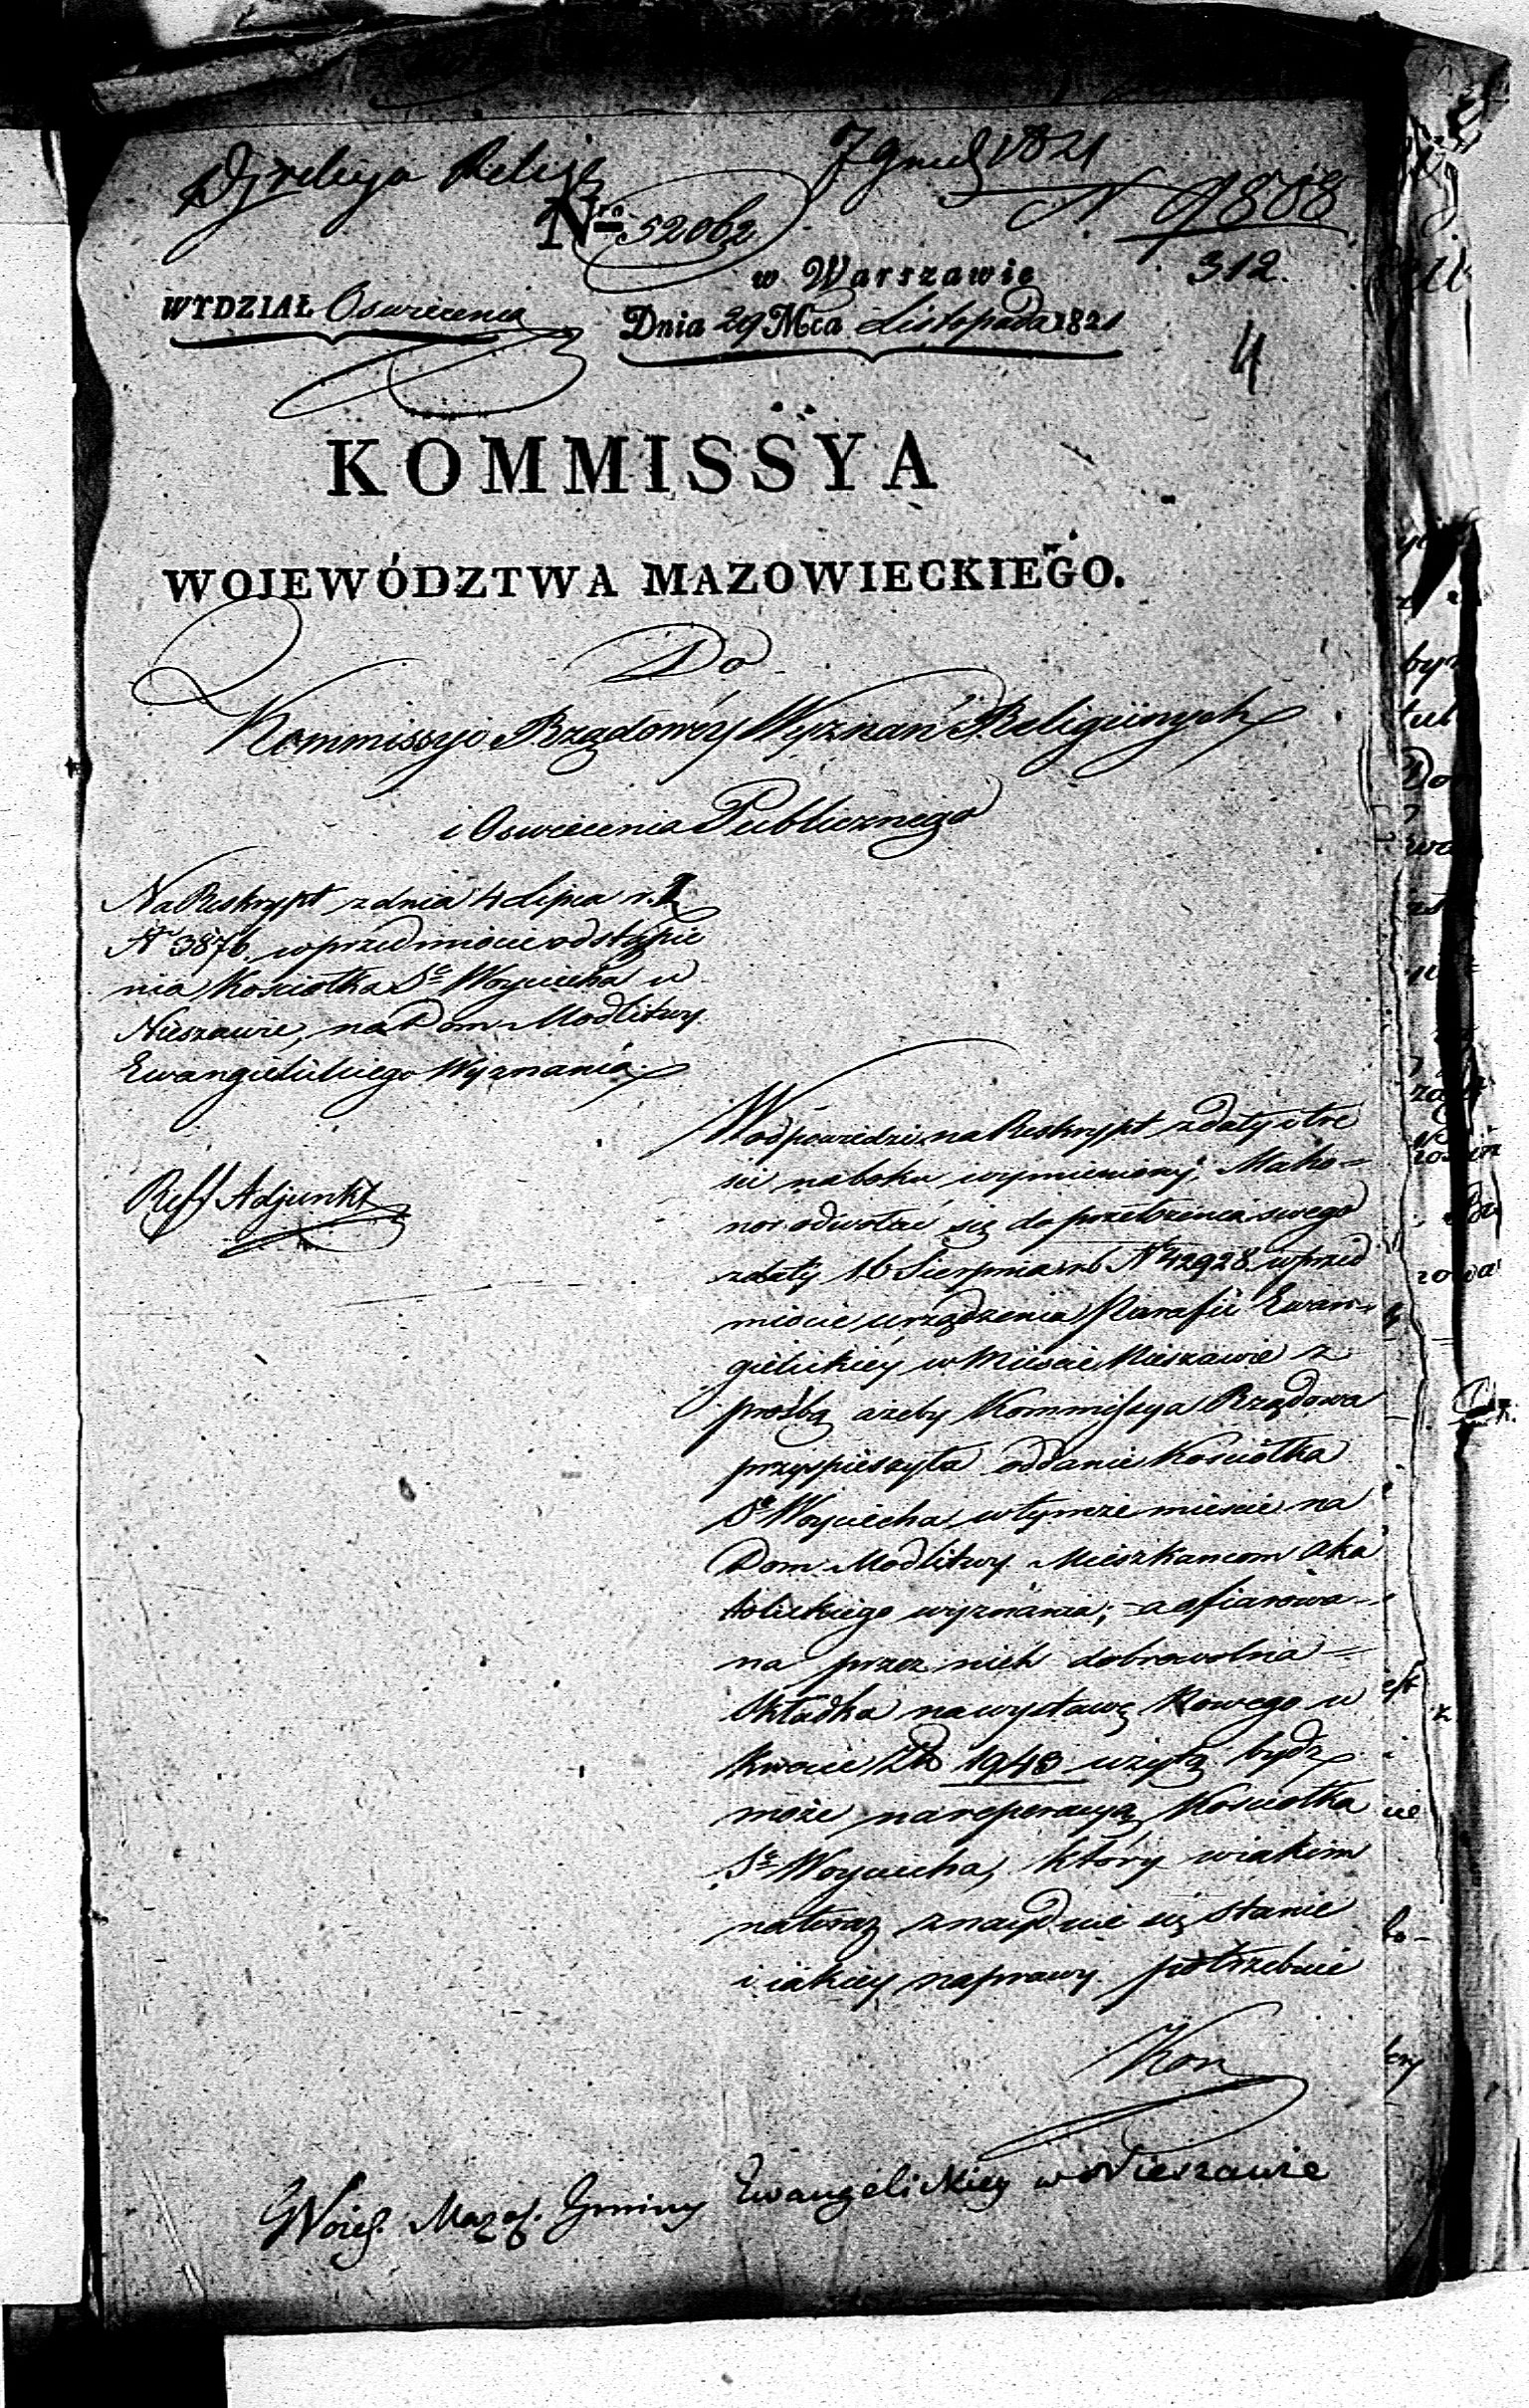 Dyrekcya Relig
7 Grud 1821
N. 9808
312.
Nro 52062
w Warszawie
WYDZIAŁ Oswiecenia
Dnia 29 Mca Listopada 1821
4
KOMMISSYA
WOJEWÓDZTWA MAZOWIECKIEGO.
Do
Kommissyi Rządowéy Wyznań Religiinych
i Oswiecenia Publicznego
Na Reskrypt z dnia 4 Lipca r.
N 3876. w przedmiocie odstąpie
nia Kościołka Sgo Woyciecha w
Nieszawie, na Dom Modlitwy
Ewangielickiego Wyznania.
Reff Adjunkt
W odpowiedzi na Reskrypt z daty i tre
ści na boku wymienioney, Ma ho=
nor odwołać się do przełożenia swego
z daty 16 Sierpnia r.b N 42928 w przed
miocie urządzenia Parafii Ewan=
gielickiéy w Miescie Nieszawie z
proźbą ażeby Kommissya Rządowa
przyspieszyła oddanie Kościołka
Sgo Woyciecha w tymże mieście na
Dom Modlitwy Mieszkancom Aka
tolickiego wyznania; a ofiarowa=
na przez nich dobrowolna
Składka na wystawę Nowego w
kwocie Złp 1943 użytą bydz
może na reperacyą Kościołka
Sgo Woyciecha, który w iakim
na teraz znayduie się stanie
i iakiey naprawy potrzebuie
Kom
Woies. Mazos. Gminy Ewangelickiey w Nieszawie